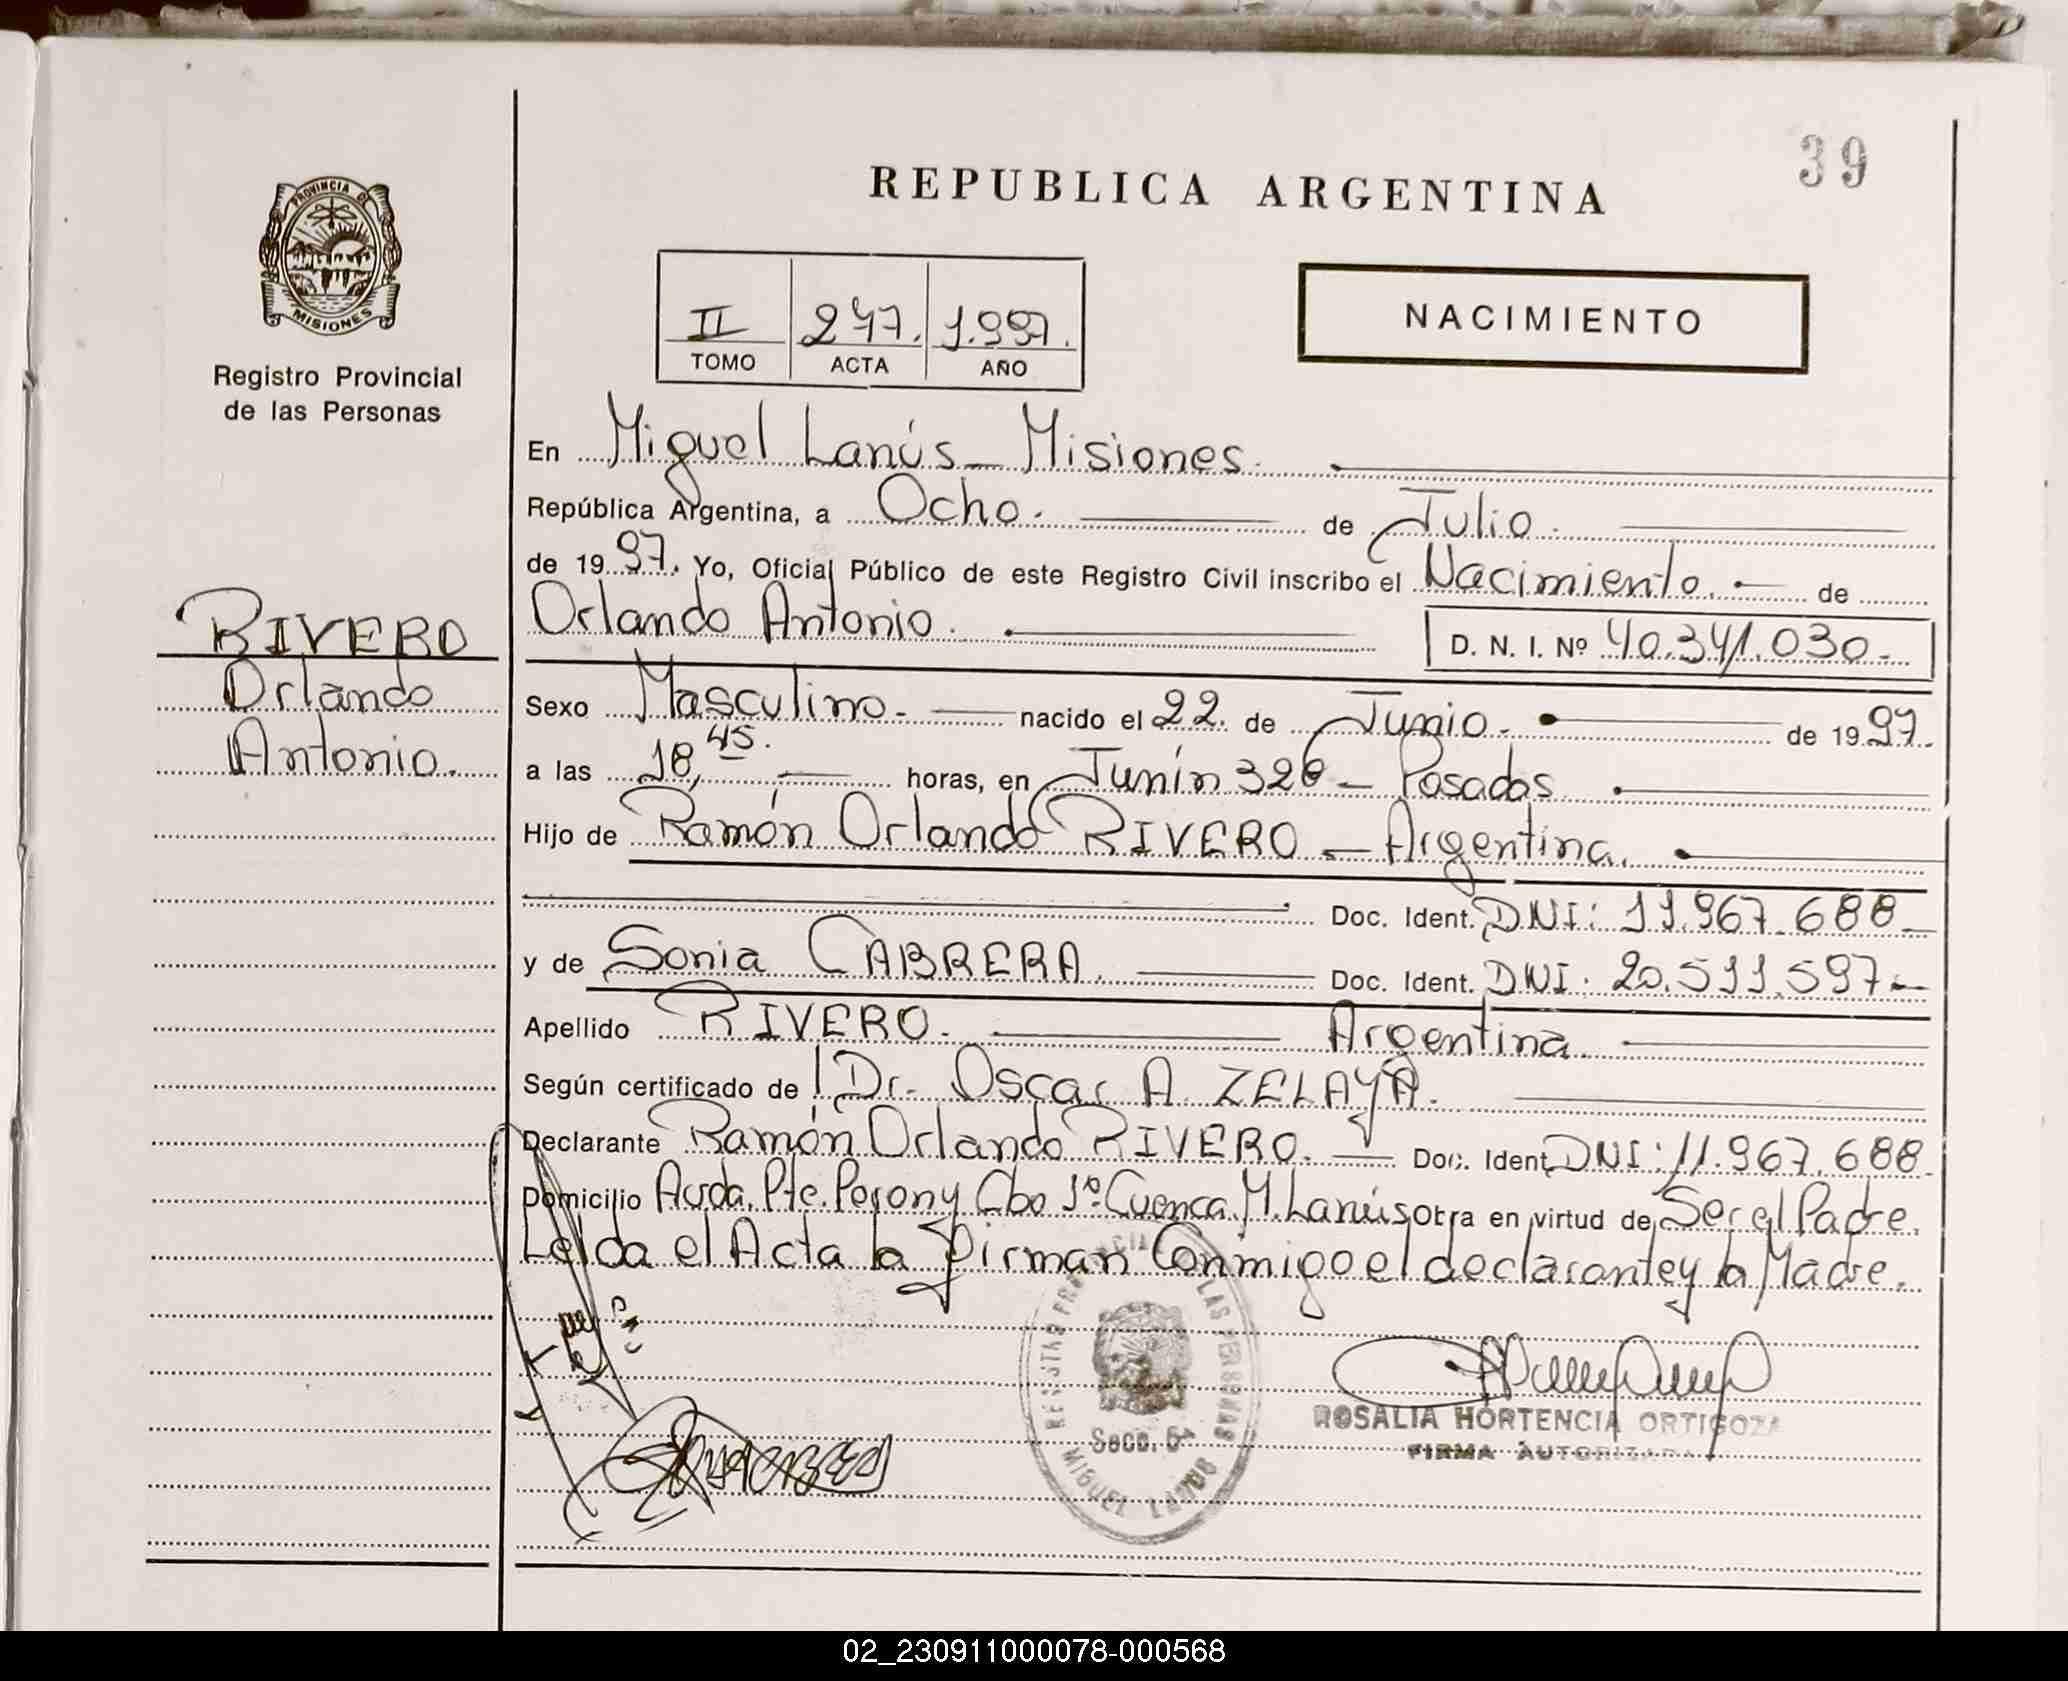 39
REPUBLICA ARGENTINA
PROVINCIA DE
MISIONES
Registro Provincial
de las Personas
II 247. 1.997.
TOMO ACTA AÑO
NACIMIENTO
En Miguel Lanús - Misiones.
República Argentina, a Ocho. de Julio.
de 1997. Yo, Oficial Público de este Registro Civil inscribo el Nacimiento. de
Orlando Antonio. D. N. I. Nº 40.341.030.-
RIVERO
Orlando
Antonio.
Sexo Masculino.- nacido el 22. de Junio.- de 1997.
a las 18,45. horas, en Junín 326 - Posadas
Hijo de Ramón Orlando RIVERO - Argentina.
Doc. Ident. DNI: 11.967.688-
y de Sonia CABRERA. Doc. Ident. DNI: 20.511.597.-
Apellido RIVERO. Argentina.
Según certificado de Dr. Oscar A. ZELAYA.
Declarante Ramón Orlando RIVERO. Doc. Ident. DNI: 11.967.688.
Domicilio Avda. Pte. Peron y Cbo 1º. Cuenca. M. Lanús Obra en virtud de Ser el Padre.
Leida el Acta la firman Conmigo el declarante y la Madre.
LAS PERSONAS
Secc. 5ª
MIGUEL LANUS
ROSALIA HORTENCIA ORTIGOZA
FIRMA AUTORIZADA
02_230911000078-000568